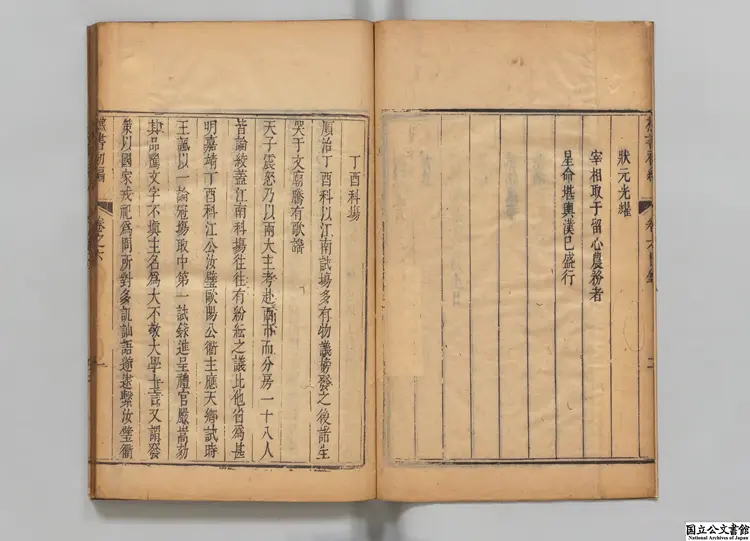 狀元光耀
宰相取于留心農務者
星命堪輿漢已盛行
二
丁酉科塲
順治丁酉科以江南試塲多有物議榜發之後諸生
哭于文廟騰有歌謠
天子震怒乃以兩大主考赴西市而分房一十八人
皆論絞蓋江南科塲往往有紛紜之議比他省爲甚
明嘉靖丁酉科江公汝璧歐陽公衢主應天鄉試時
王諷以一論冠塲取中第一試錄進呈禮官嚴嵩劾
其品隲文字不填主名爲大不敬大學士言又謂發
策以國家戎祀爲問所對多訕語遂逮繫汝璧衢
樵書初編
卷之六
一
国立公文書館
National Archives of Japan